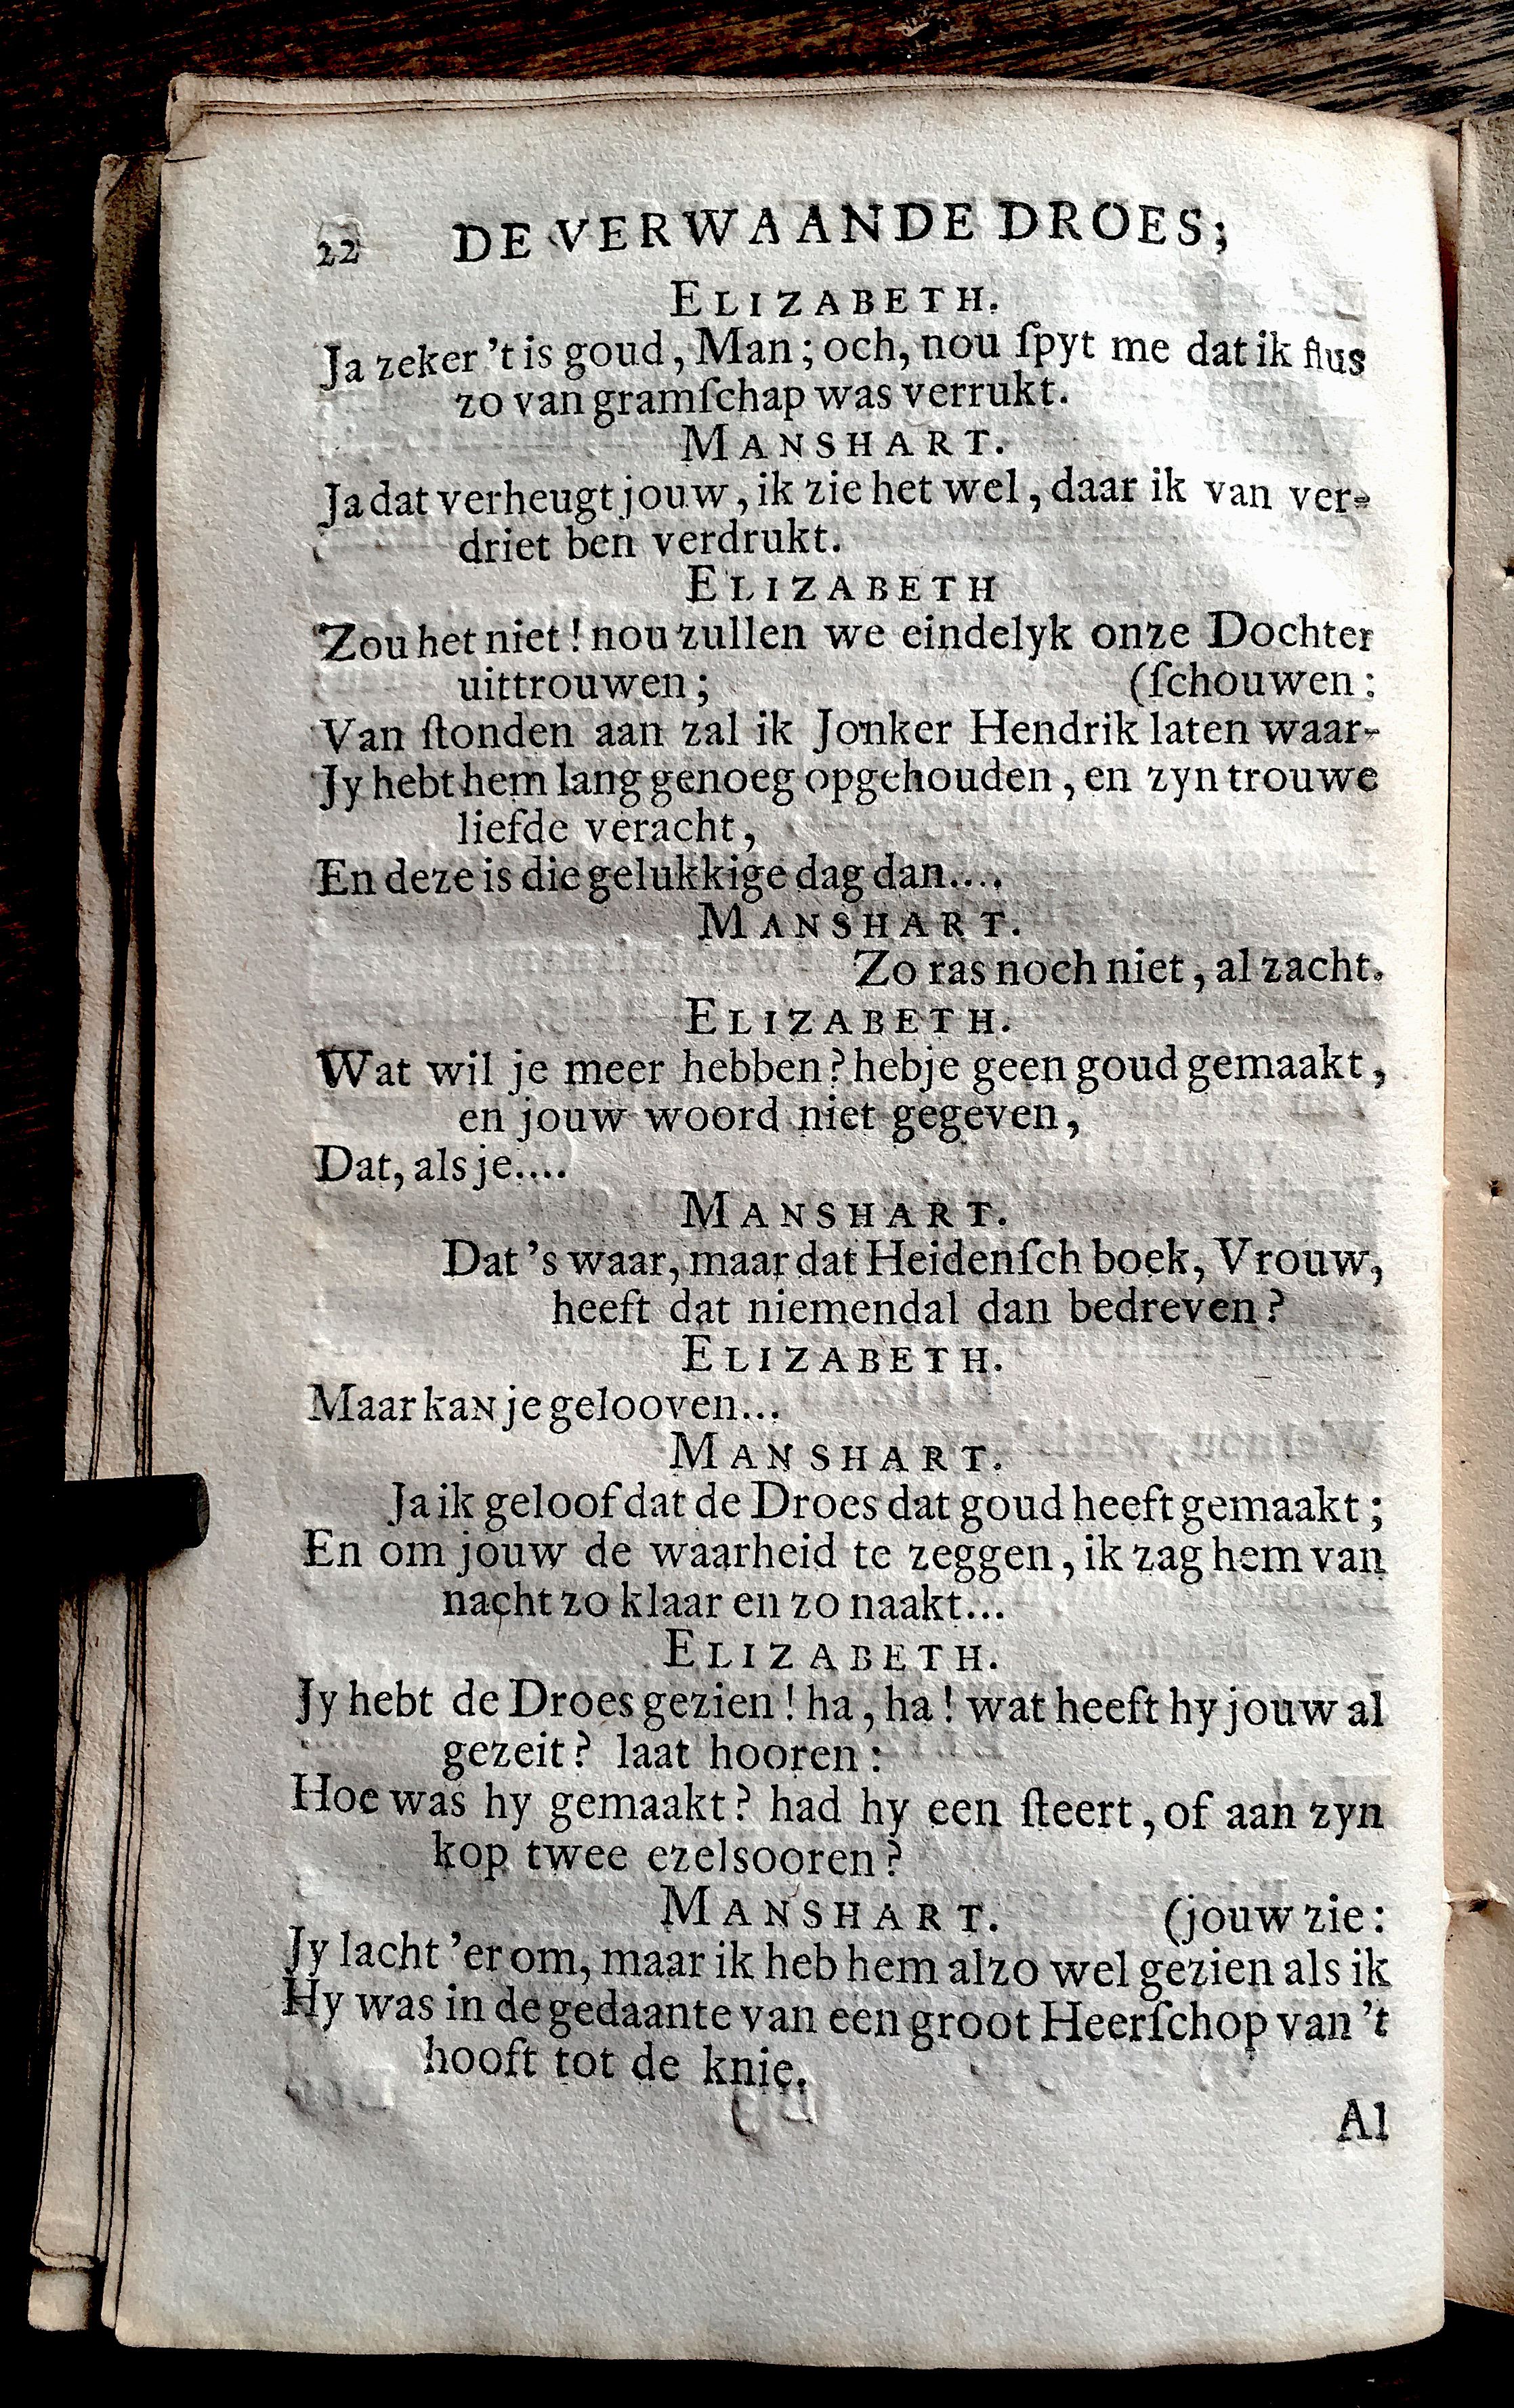 22 DE VERWAANDE DROES;
ELIZABETH.
Ja zeker 't is goud, Man; och, nou ſpyt me dat ik flus
zo van gramſchap was verrukt.
MANSHART.
Ja dat verheugt jouw, ik zie het wel, daar ik van ver-
driet ben verdrukt.
ELIZABETH
Zou het niet! nou zullen we eindelyk onze Dochter
uittrouwen; (ſchouwen:
Van ſtonden aan zal ik Jonker Hendrik laten waar-
Jy hebt hem lang genoeg opgehouden, en zyn trouwe
liefde veracht,
En deze is die gelukkige dag dan....
MANSHART.
Zo ras noch niet, al zacht.
ELIZABETH.
Wat wil je meer hebben? hebje geen goud gemaakt,
en jouw woord niet gegeven,
Dat, als je....
MANSHART.
Dat 's waar, maar dat Heidenſch boek, Vrouw,
heeft dat niemendal dan bedreven?
ELIZABETH.
Maar kaN je gelooven...
MANSHART.
Ja ik geloof dat de Droes dat goud heeft gemaakt;
En om jouw de waarheid te zeggen, ik zag hem van
nacht zo klaar en zo naakt...
ELIZABETH.
Jy hebt de Droes gezien! ha, ha! wat heeft hy jouw al
gezeit? laat hooren:
Hoe was hy gemaakt? had hy een ſteert, of aan zyn
kop twee ezelsooren?
MANSHART. (jouw zie:
Jy lacht 'er om, maar ik heb hem alzo wel gezien als ik
Hy was in de gedaante van een groot Heerſchop van 't
hooft tot de knie.
Al